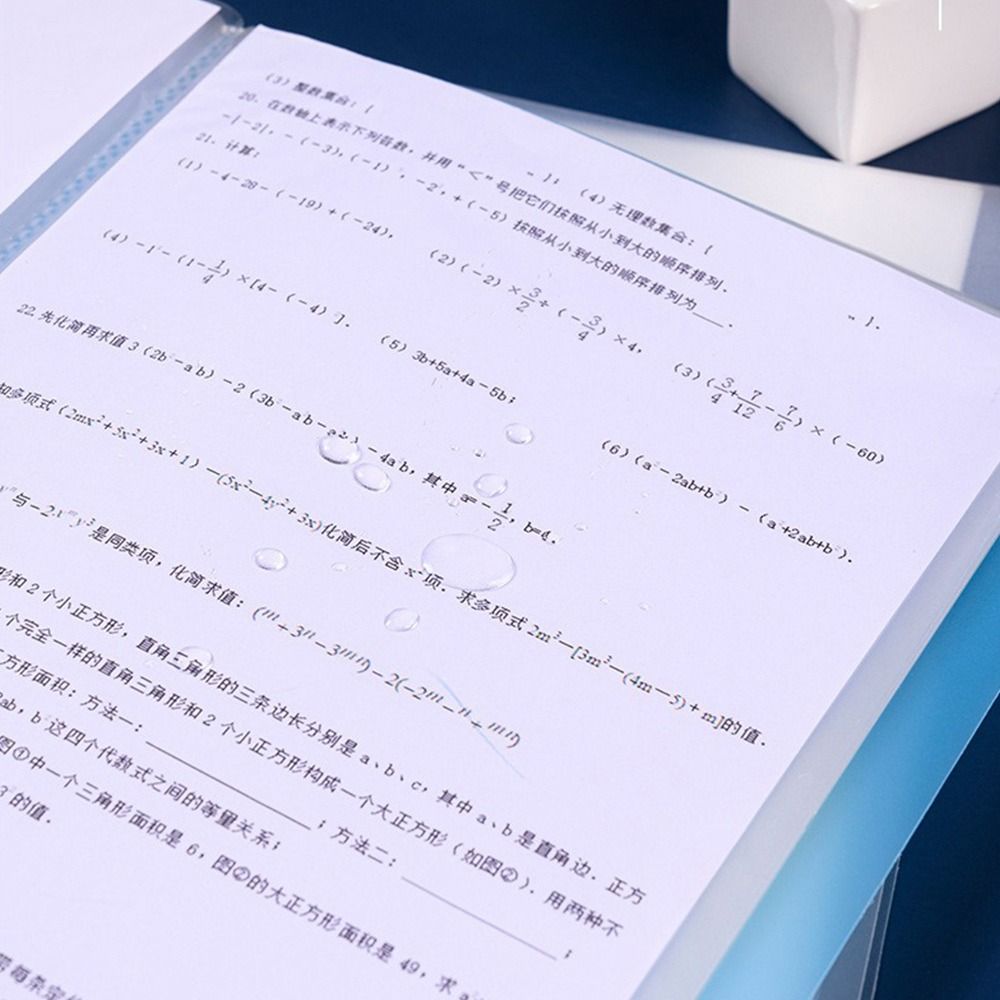 (3) 整数集合：{ … }； (4) 无理数集合：{ … }.
20. 在数轴上表示下列各数，并用“＜”号把它们按照从小到大的顺序排列.
-|-2|, -(-3), (-1) , -2², +(-5) 按照从小到大的顺序排列为___.
21. 计算：
(1) -4-28-(-19)+(-24)，
(2) (-2)×3/2+(-3/4)×4，
(3) (3/4+7/12-7/6)×(-60)
(4) -1 -(1-1/4)×[4-(-4) ].
(5) 3b+5a+4a-5b；
(6) (a²-2ab+b²)-(a +2ab+b²).
22.先化简再求值 3(2b²-a b)-2(3b²-ab-a²b)-4a b，其中 a=-1/2，b=4.
知多项式(2mx²+5x²+3x+1)-(5x²-4y²+3x)化简后不含 x²项. 求多项式 2m³-[3m³-(4m-5)+m]的值.
与 -2x y³ 是同类项，化简求值：(m+3n-3mn)-2(-2m-n+mn)
形和 2 个小正方形，直角三角形的三条边长分别是 a、b、c，其中 a、b 是直角边. 正方
个完全一样的直角三角形和 2 个小正方形构成一个大正方形(如图②). 用两种不
方形面积：方法一：________；方法二：________；
ab，b²这四个代数式之间的等量关系；
图①中一个三角形面积是 6，图②的大正方形面积是 49，求 a
3 的值.